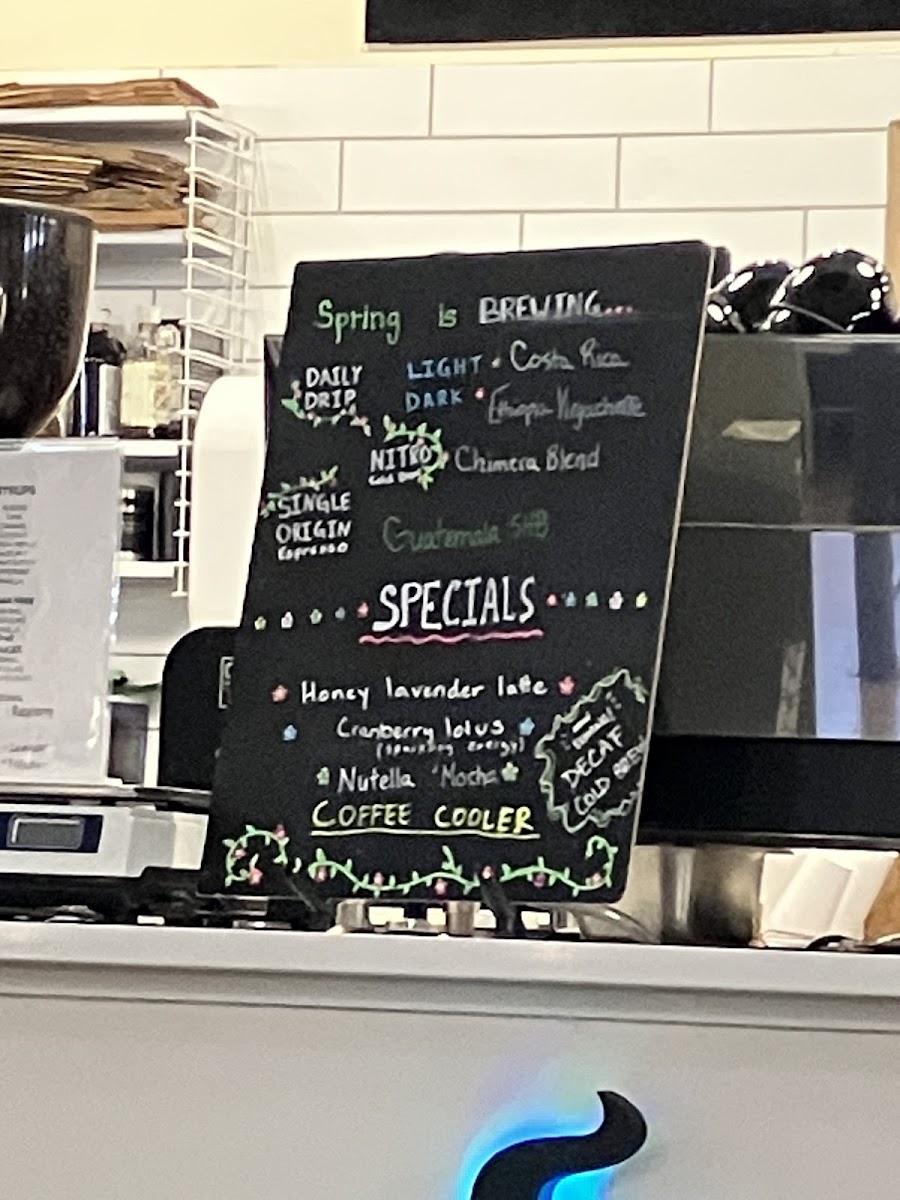 Spring is BREWING...
DAILY DRIP
LIGHT • Costa Rica
DARK • Ethiopia
NITRO Chimera Blend
Cold Brew
SINGLE
ORIGIN Guatemala SHB
Espresso
SPECIALS
Honey lavender latte
Cranberry lotus
(sparkling energy)
Nutella Mocha
COFFEE COOLER
DECAF
COLD BREW